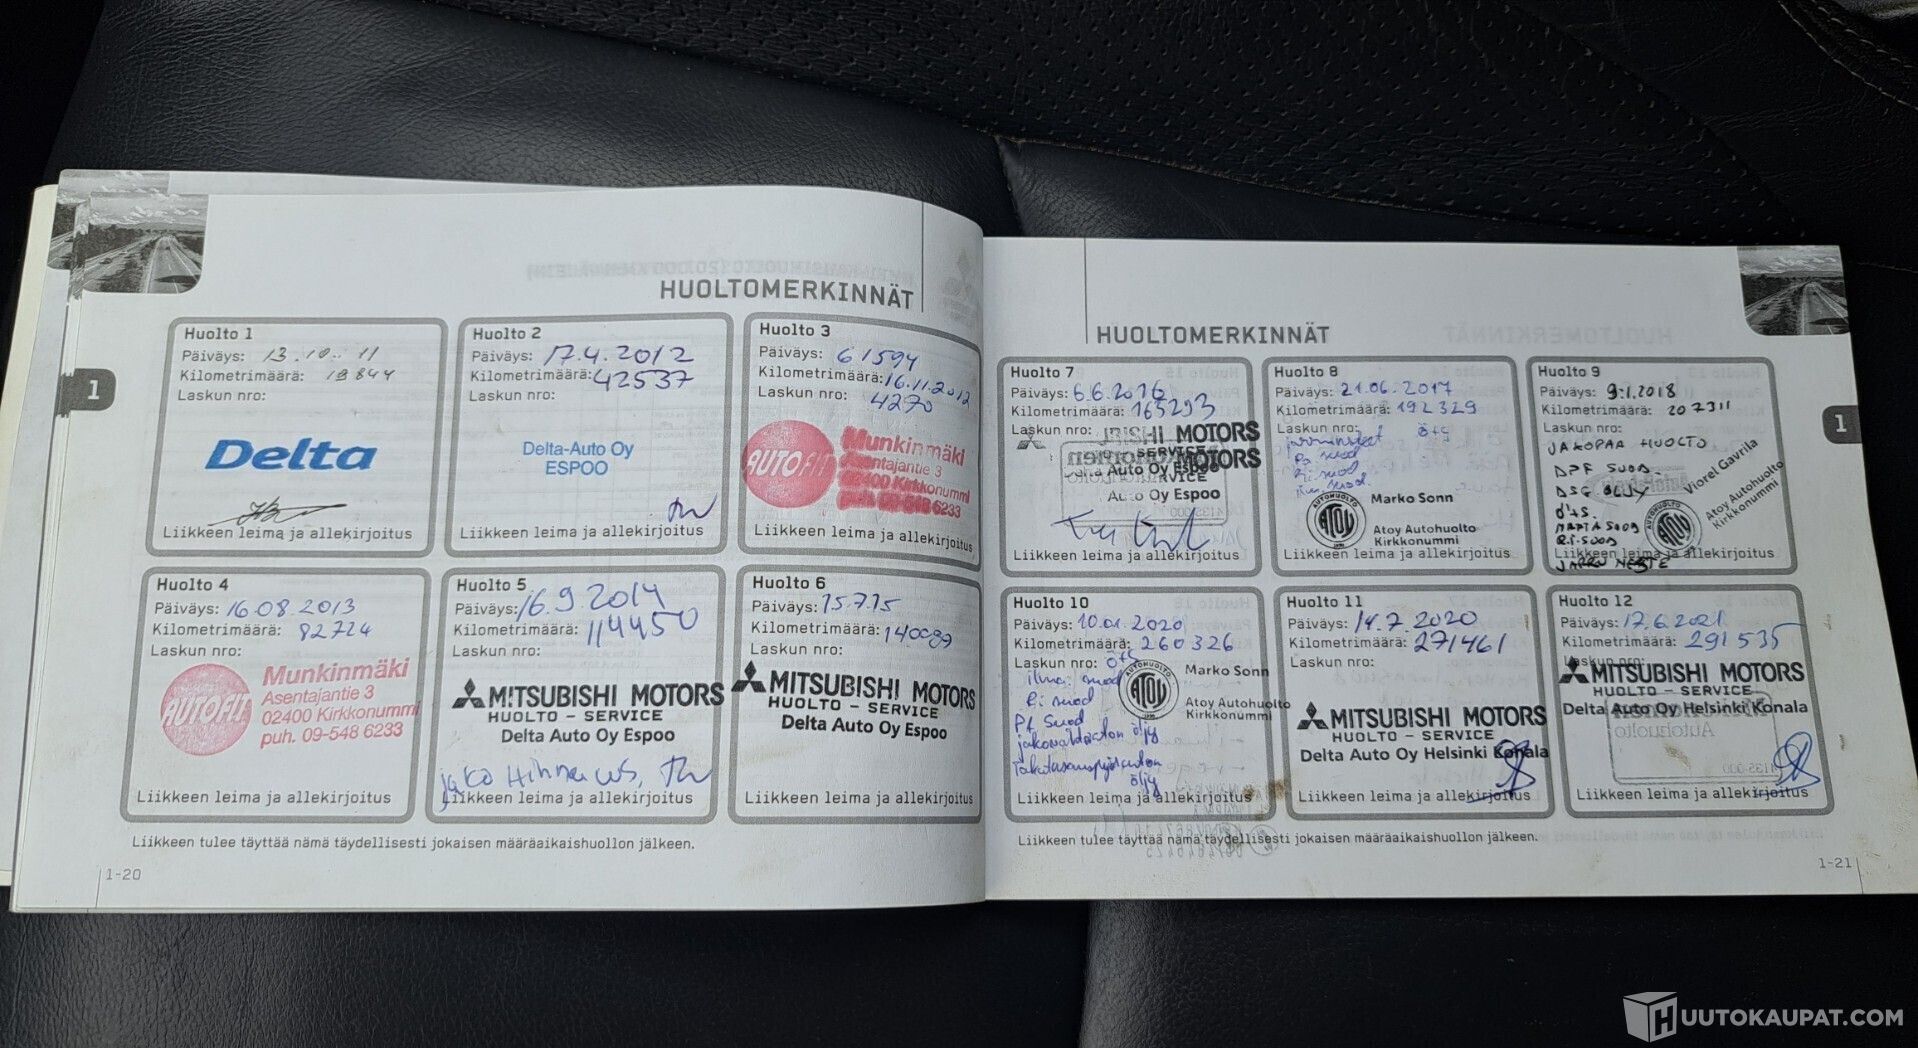 HUOLTOMERKINNÄT
1
Huolto 1
Päiväys: 13.10.11
Kilometrimäärä: 19844
Laskun nro:
Delta
Liikkeen leima ja allekirjoitus
Huolto 2
Päiväys: 17.4.2012
Kilometrimäärä: 42537
Laskun nro:
Delta-Auto Oy
ESPOO
Liikkeen leima ja allekirjoitus
Huolto 3
Päiväys: 61594
Kilometrimäärä: 16.11.2012
Laskun nro: 4270
AUTOFIT
Munkinmäki
Asentajantie 3
02400 Kirkkonummi
6233
Liikkeen leima ja allekirjoitus
Huolto 4
Päiväys: 16.08.2013
Kilometrimäärä: 82724
Laskun nro:
AUTOFIT
Munkinmäki
Asentajantie 3
02400 Kirkkonummi
puh. 09-548 6233
Liikkeen leima ja allekirjoitus
Huolto 5
Päiväys: 16.9.2014
Kilometrimäärä: 114450
Laskun nro:
MITSUBISHI MOTORS
HUOLTO - SERVICE
Delta Auto Oy Espoo
jako Hihna
Liikkeen leima ja allekirjoitus
Huolto 6
Päiväys: 15.7.15
Kilometrimäärä:
Laskun nro:
MITSUBISHI MOTORS
HUOLTO - SERVICE
Delta Auto Oy Espoo
Liikkeen leima ja allekirjoitus
Liikkeen tulee täyttää nämä täydellisesti jokaisen määräaikaishuollon jälkeen.
1-20
HUOLTOMERKINNÄT
1
Huolto 7
Päiväys: 6.6.2016
Kilometrimäärä: 165293
Laskun nro:
MOTORS
SERVICE
Auto Oy Espoo
MOTORS
SERVICE
Oy Espoo
Liikkeen leima ja allekirjoitus
Huolto 8
Päiväys: 21.06.2017
Kilometrimäärä: 192329
Laskun nro: ö+s
Ri suod
ilm. suod.
AUTOHUOLTO
ATOY
Marko Sonn
Atoy Autohuolto
Kirkkonummi
Liikkeen leima ja allekirjoitus
Huolto 9
Päiväys: 9.1.2018
Kilometrimäärä: 207311
Laskun nro:
JAKOPÄÄ HUOLTO
DPF SUOD.
DSG ÖLJY
Ö+S.
RI.SUOD
JARRU NESTE
Viorel Gavrila
AUTOHUOLTO
ATOY
Atoy Autohuolto
Kirkkonummi
Liikkeen leima ja allekirjoitus
Huolto 10
Päiväys: 10.01.2020
Kilometrimäärä: 260326
Laskun nro: ö+s
ilma: suod
Ri suod
suod
öljy
öljy
AUTOHUOLTO
ATOY
Marko Sonn
Atoy Autohuolto
Kirkkonummi
Liikkeen leima ja allekirjoitus
Huolto 11
Päiväys: 14.7.2020
Kilometrimäärä: 271461
Laskun nro:
MITSUBISHI MOTORS
HUOLTO - SERVICE
Delta Auto Oy Helsinki Konala
Liikkeen leima ja allekirjoitus
Huolto 12
Päiväys: 17.6.2021
Kilometrimäärä: 291535
Laskun nro:
MITSUBISHI MOTORS
HUOLTO - SERVICE
Delta Auto Oy Helsinki Konala
Liikkeen leima ja allekirjoitus
Liikkeen tulee täyttää nämä täydellisesti jokaisen määräaikaishuollon jälkeen.
1-21
HUUTOKAUPAT.COM